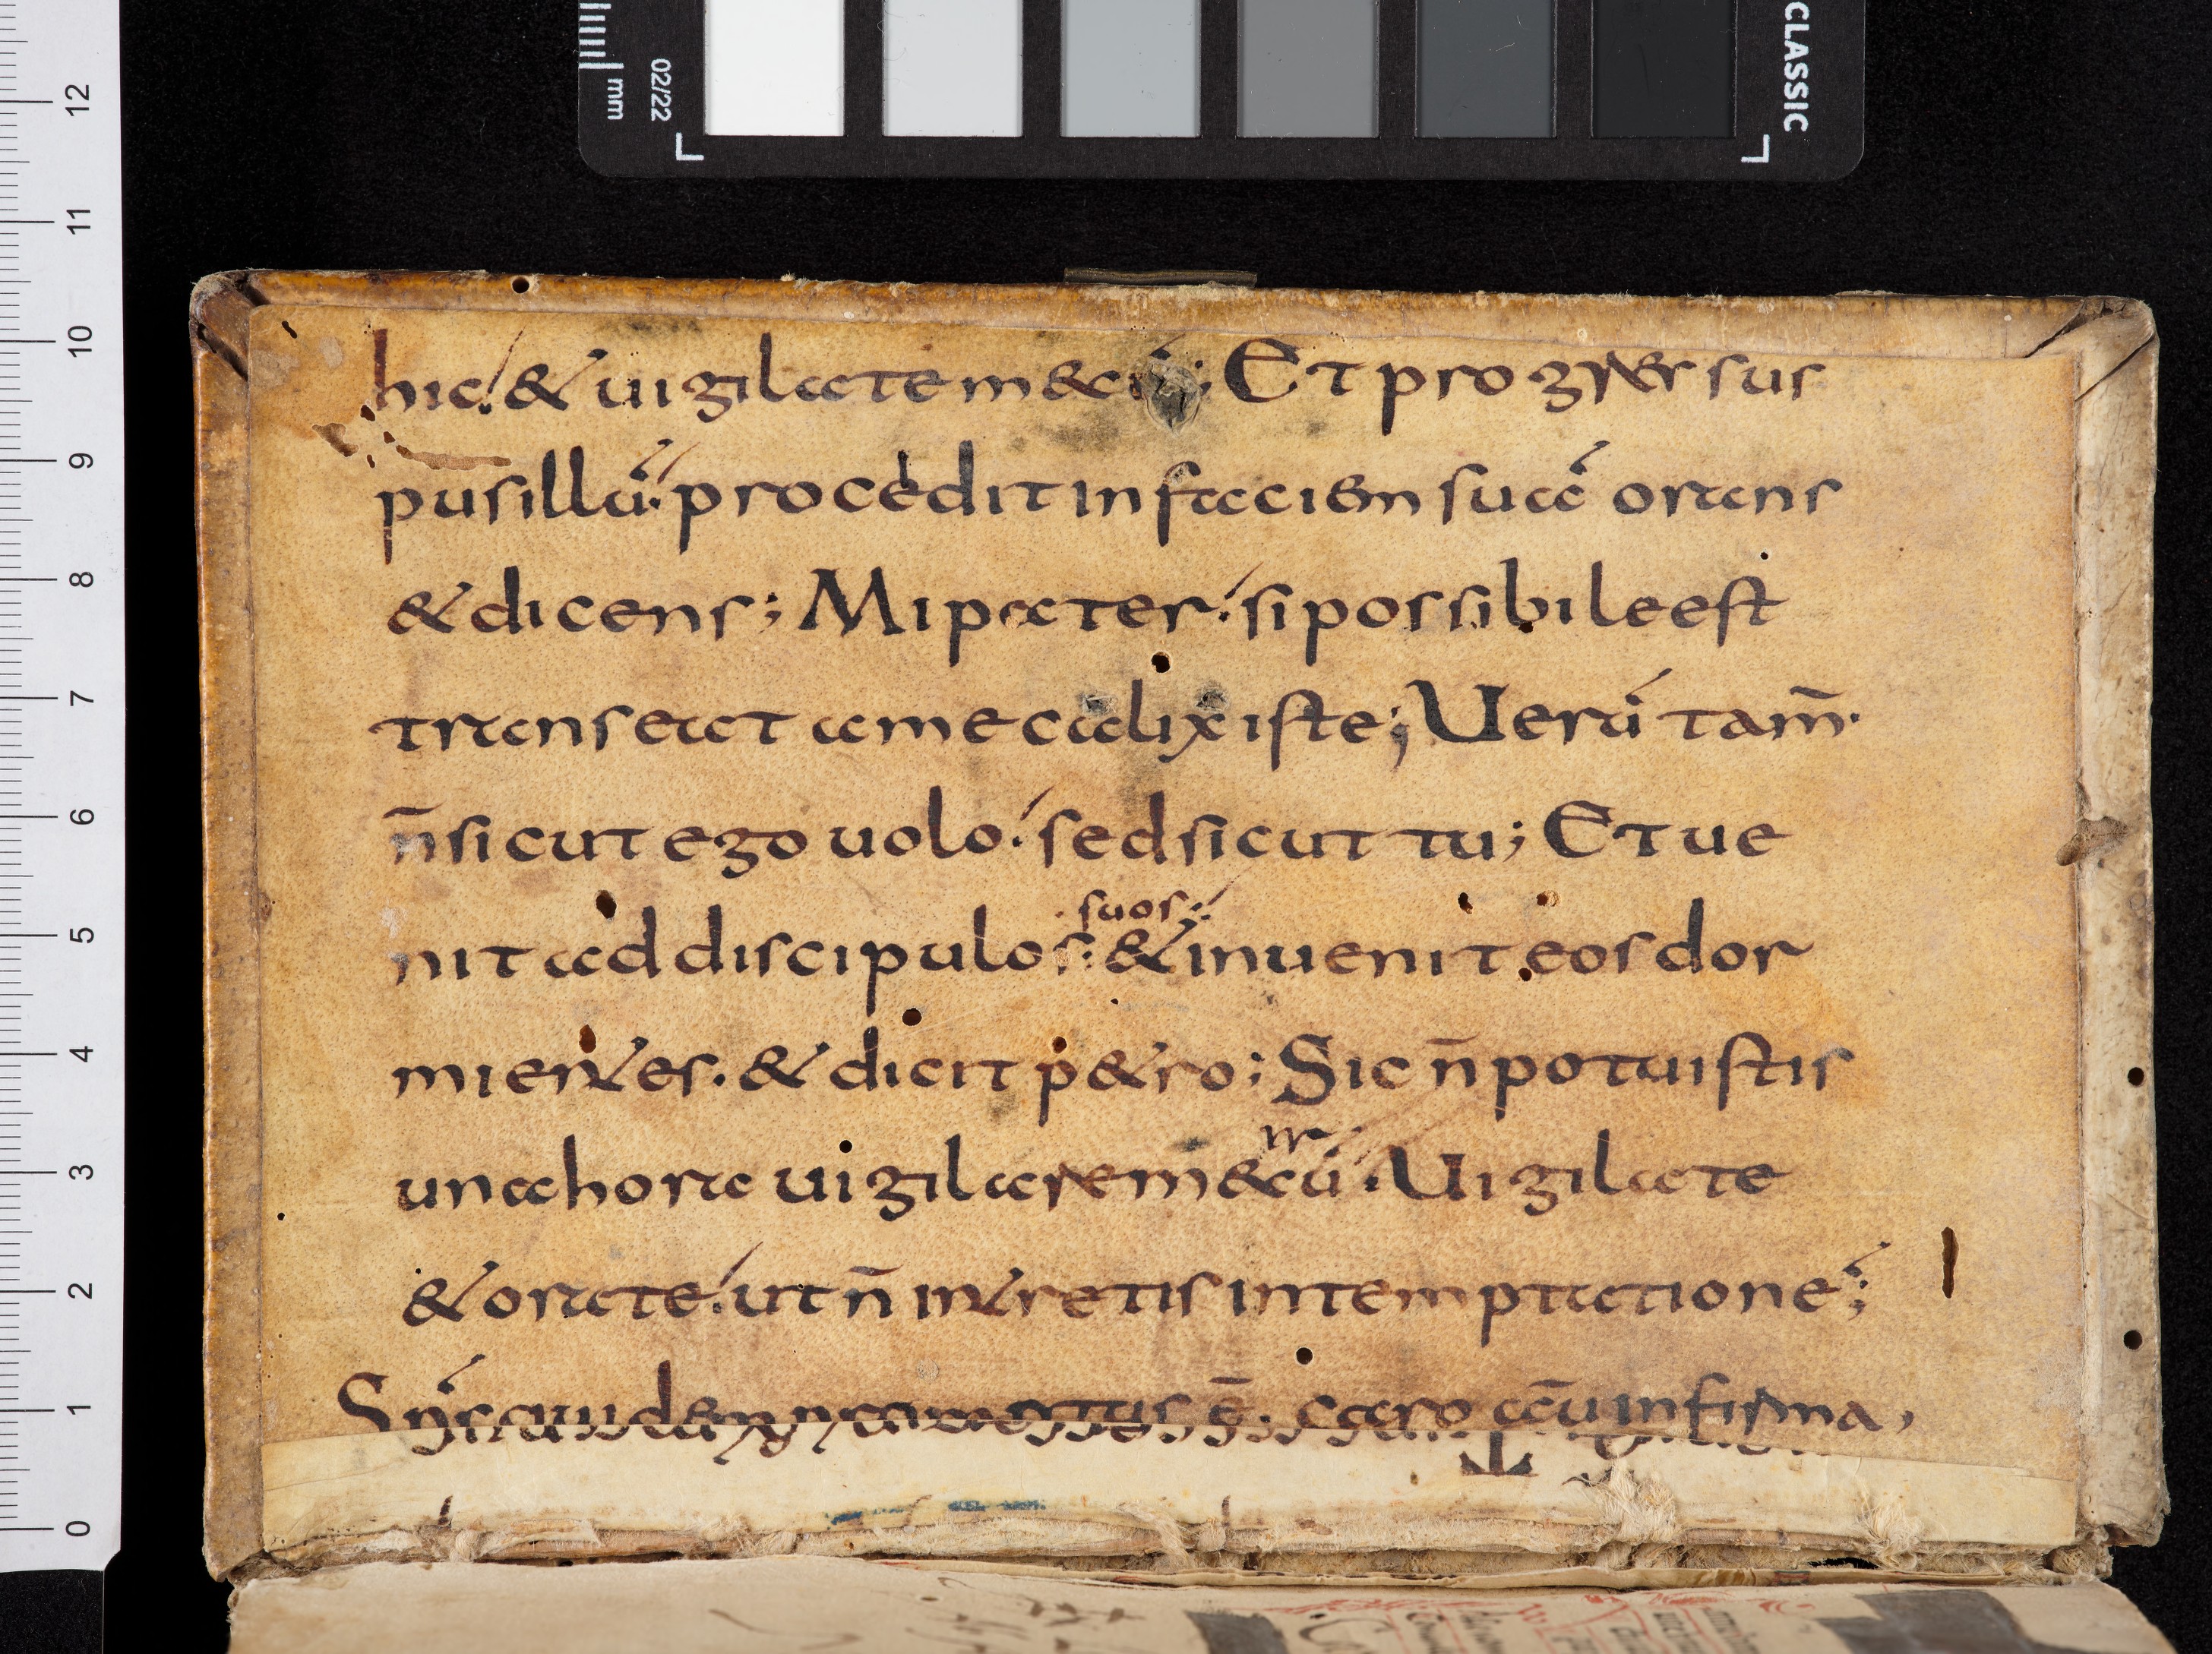 CLASSIC
02/22
mm
12
11
10
9
8
7
6
5
4
3
2
1
0
hic & uigilate m&cū; Et progressus
pusillū procedit in faciem suā orans
& dicens; Mi pater si possibile est
transeat a me calix iste; Uerū tam̄.
n̄ sicut ego uolo sed sicut tu; Et ue
suos
nit ad discipulos & inuenit eos dor
mientes. & dicit p&ro; Sic n̄ potuistis
una hora uigilare m&cū. Uigilate
& orate ut n̄ intretis in temptatione;
caro aū infirma,